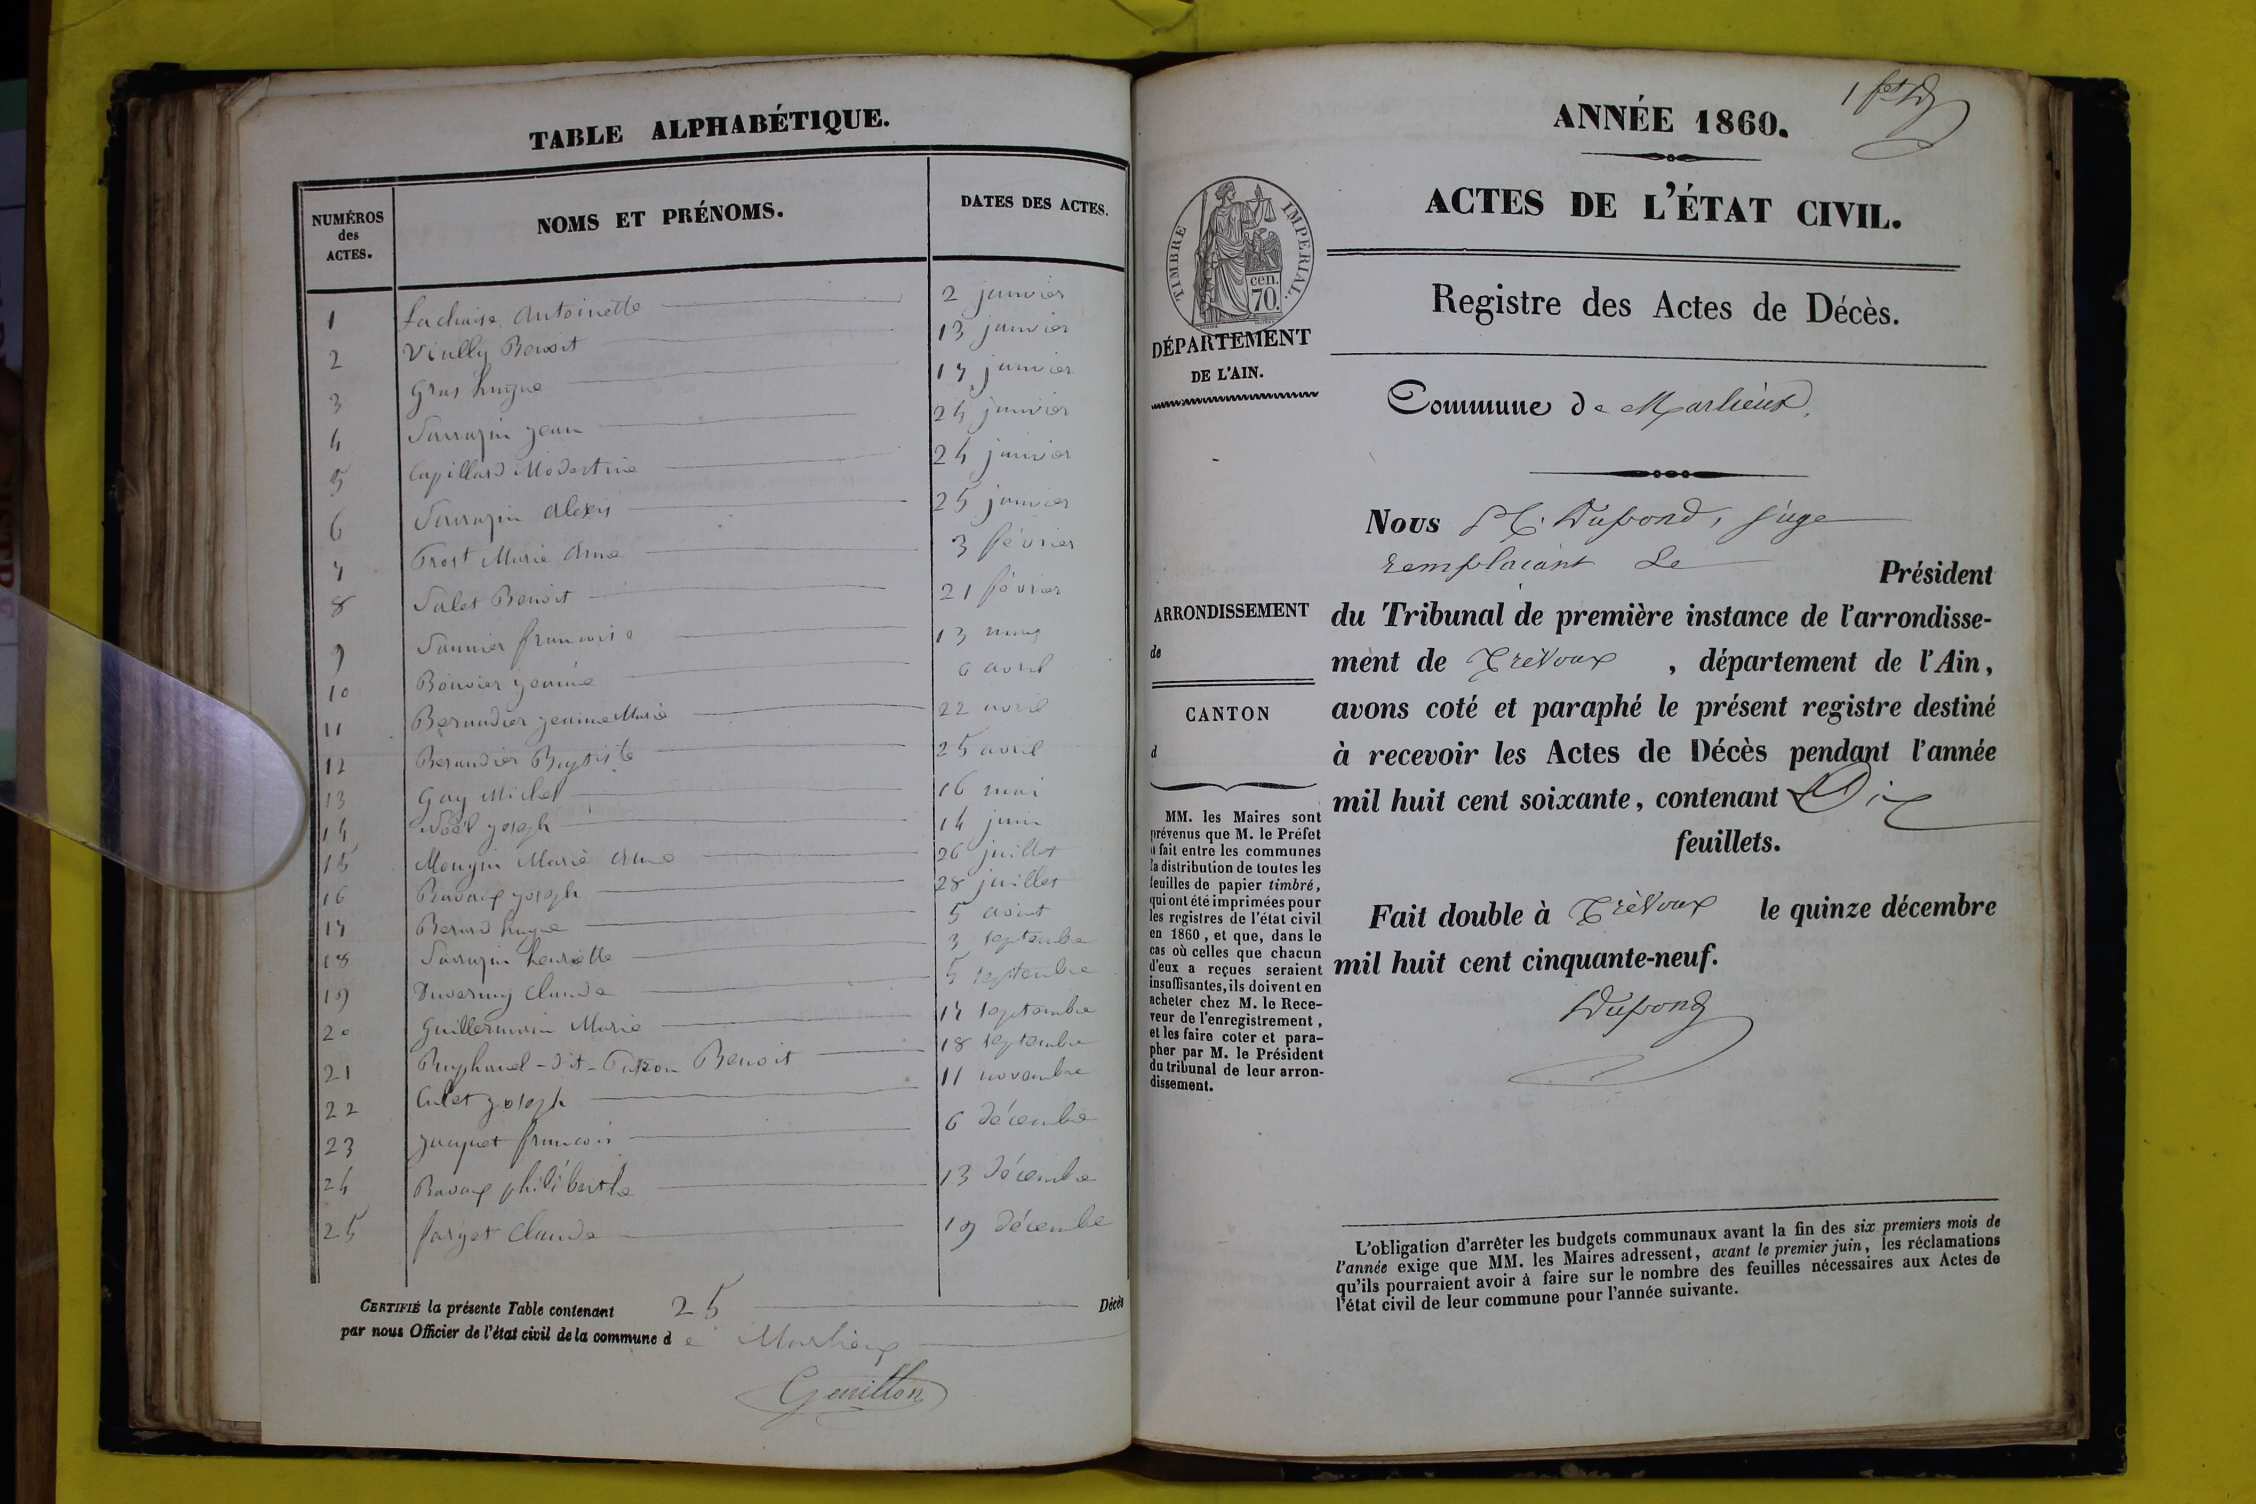 TABLE ALPHABÉTIQUE.
NUMÉROS
des
ACTES.
NOMS ET PRÉNOMS.
DATES DES ACTES.
1 Lachaise Antoinette 2 janvier
2 Vially Benoit 13 janvier
3 Gras hugue 17 janvier
4 Sarrazin jean 24 janvier
5 Capillard Modestine 24 janvier
6 Sarrazin Alexis 25 janvier
7 Prost Marie Anne 3 février
8 Salet Benoit 21 février
9 Saunier francois 13 mars
10 Bouvier jennie 6 avril
11 Beraudier jenine Marie 22 avril
12 Beraudier Baptiste 25 avril
13 Gay Michel 16 mai
14 Noël joseph 14 juin
15 Mougin Marie Anne 26 juillet
16 Ravaux joseph 28 juillet
17 Berard hugue 5 août
18 Sarrazin henriette 3 septembre
19 Duvernay Claude 5 septembre
20 Guillermain Marie 17 septembre
21 Ruphanel-dit-Pitton Benoit 18 septembre
22 Culet joseph 11 novembre
23 jacquet francois 6 décembre
24 Ravaux philiberthe 13 décembre
25 farget Claude 19 décembre
CERTIFIÉ la présente Table contenant 25 Décès
par nous Officier de l'état civil de la commune d e Marlieux
Genillon
ANNÉE 1860.
1 fet
ACTES DE L'ÉTAT CIVIL.
TIMBRE IMPÉRIAL.
cen.
70.
Registre des Actes de Décès.
DÉPARTEMENT
DE L'AIN.
Commune de Marlieux,
Nous M. Dupond, juge
remplacant Le Président
ARRONDISSEMENT
de
du Tribunal de première instance de l'arrondisse-
ment de Trévoux , département de l'Ain,
CANTON
d
avons coté et paraphé le présent registre destiné
à recevoir les Actes de Décès pendant l'année
mil huit cent soixante, contenant Dix
feuillets.
MM. les Maires sont
prévenus que M. le Préfet
a fait entre les communes
la distribution de toutes les
feuilles de papier timbré,
qui ont été imprimées pour
les registres de l'état civil
en 1860, et que, dans le
cas où celles que chacun
d'eux a reçues seraient
insuffisantes, ils doivent en
acheter chez M. le Rece-
veur de l'enregistrement,
et les faire coter et para-
pher par M. le Président
du tribunal de leur arron-
dissement.
Fait double à Trévoux le quinze décembre
mil huit cent cinquante-neuf.
Dupond
L'obligation d'arrêter les budgets communaux avant la fin des six premiers mois de
l'année exige que MM. les Maires adressent, avant le premier juin, les réclamations
qu'ils pourraient avoir à faire sur le nombre des feuilles nécessaires aux Actes de
l'état civil de leur commune pour l'année suivante.